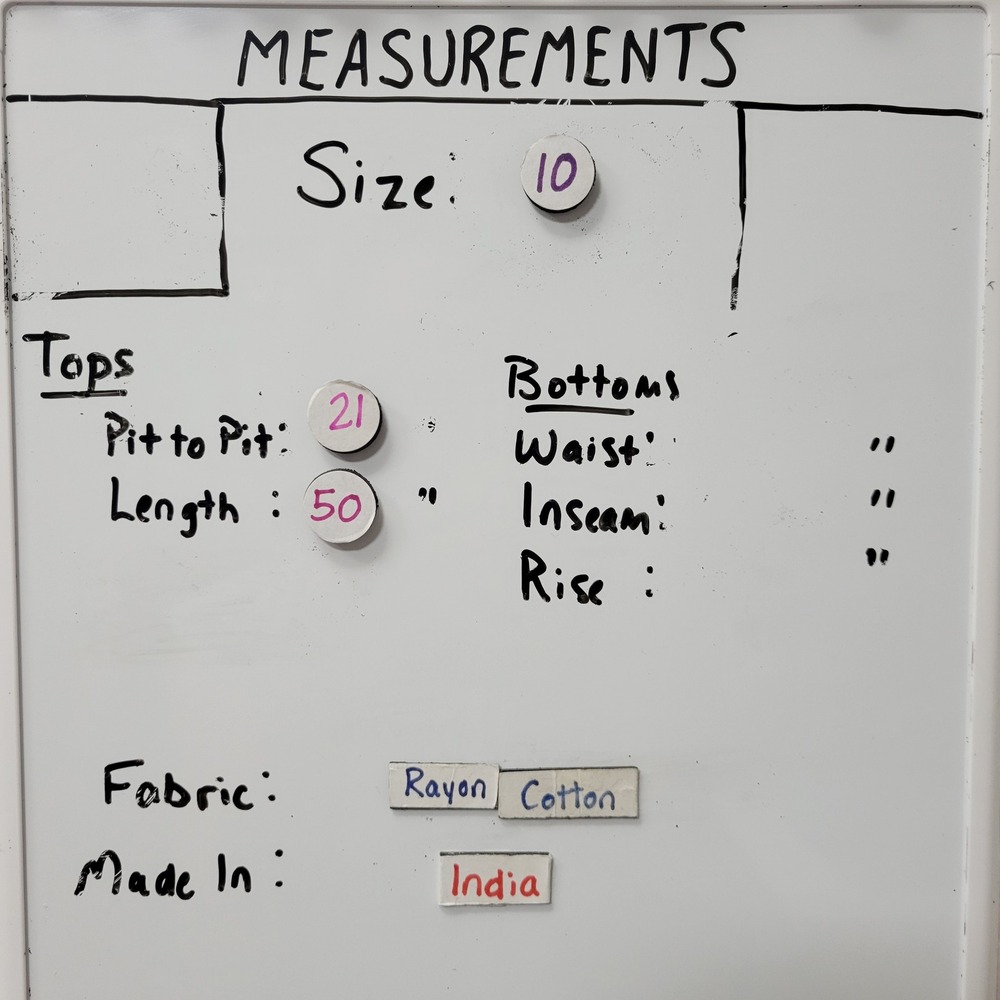 MEASUREMENTS
Size: 10
Tops
Pit to Pit: 21 "
Length : 50 "
Bottoms
Waist: "
Inseam: "
Rise : "
Fabric: Rayon Cotton
Made In: India